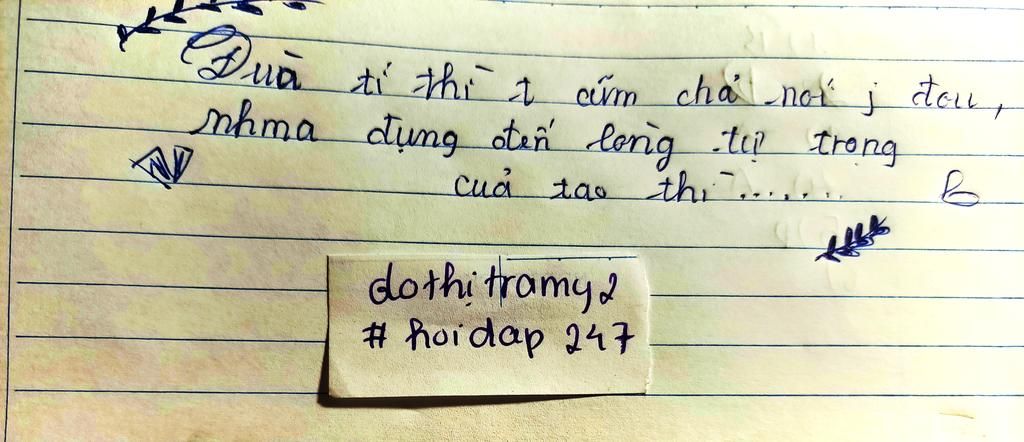 Đuà tí thì t cũm chả nói j đou,
nhma đụng đến lòng tự trọng
cuả tao thì........
dothịtramy2
# hoidap 247